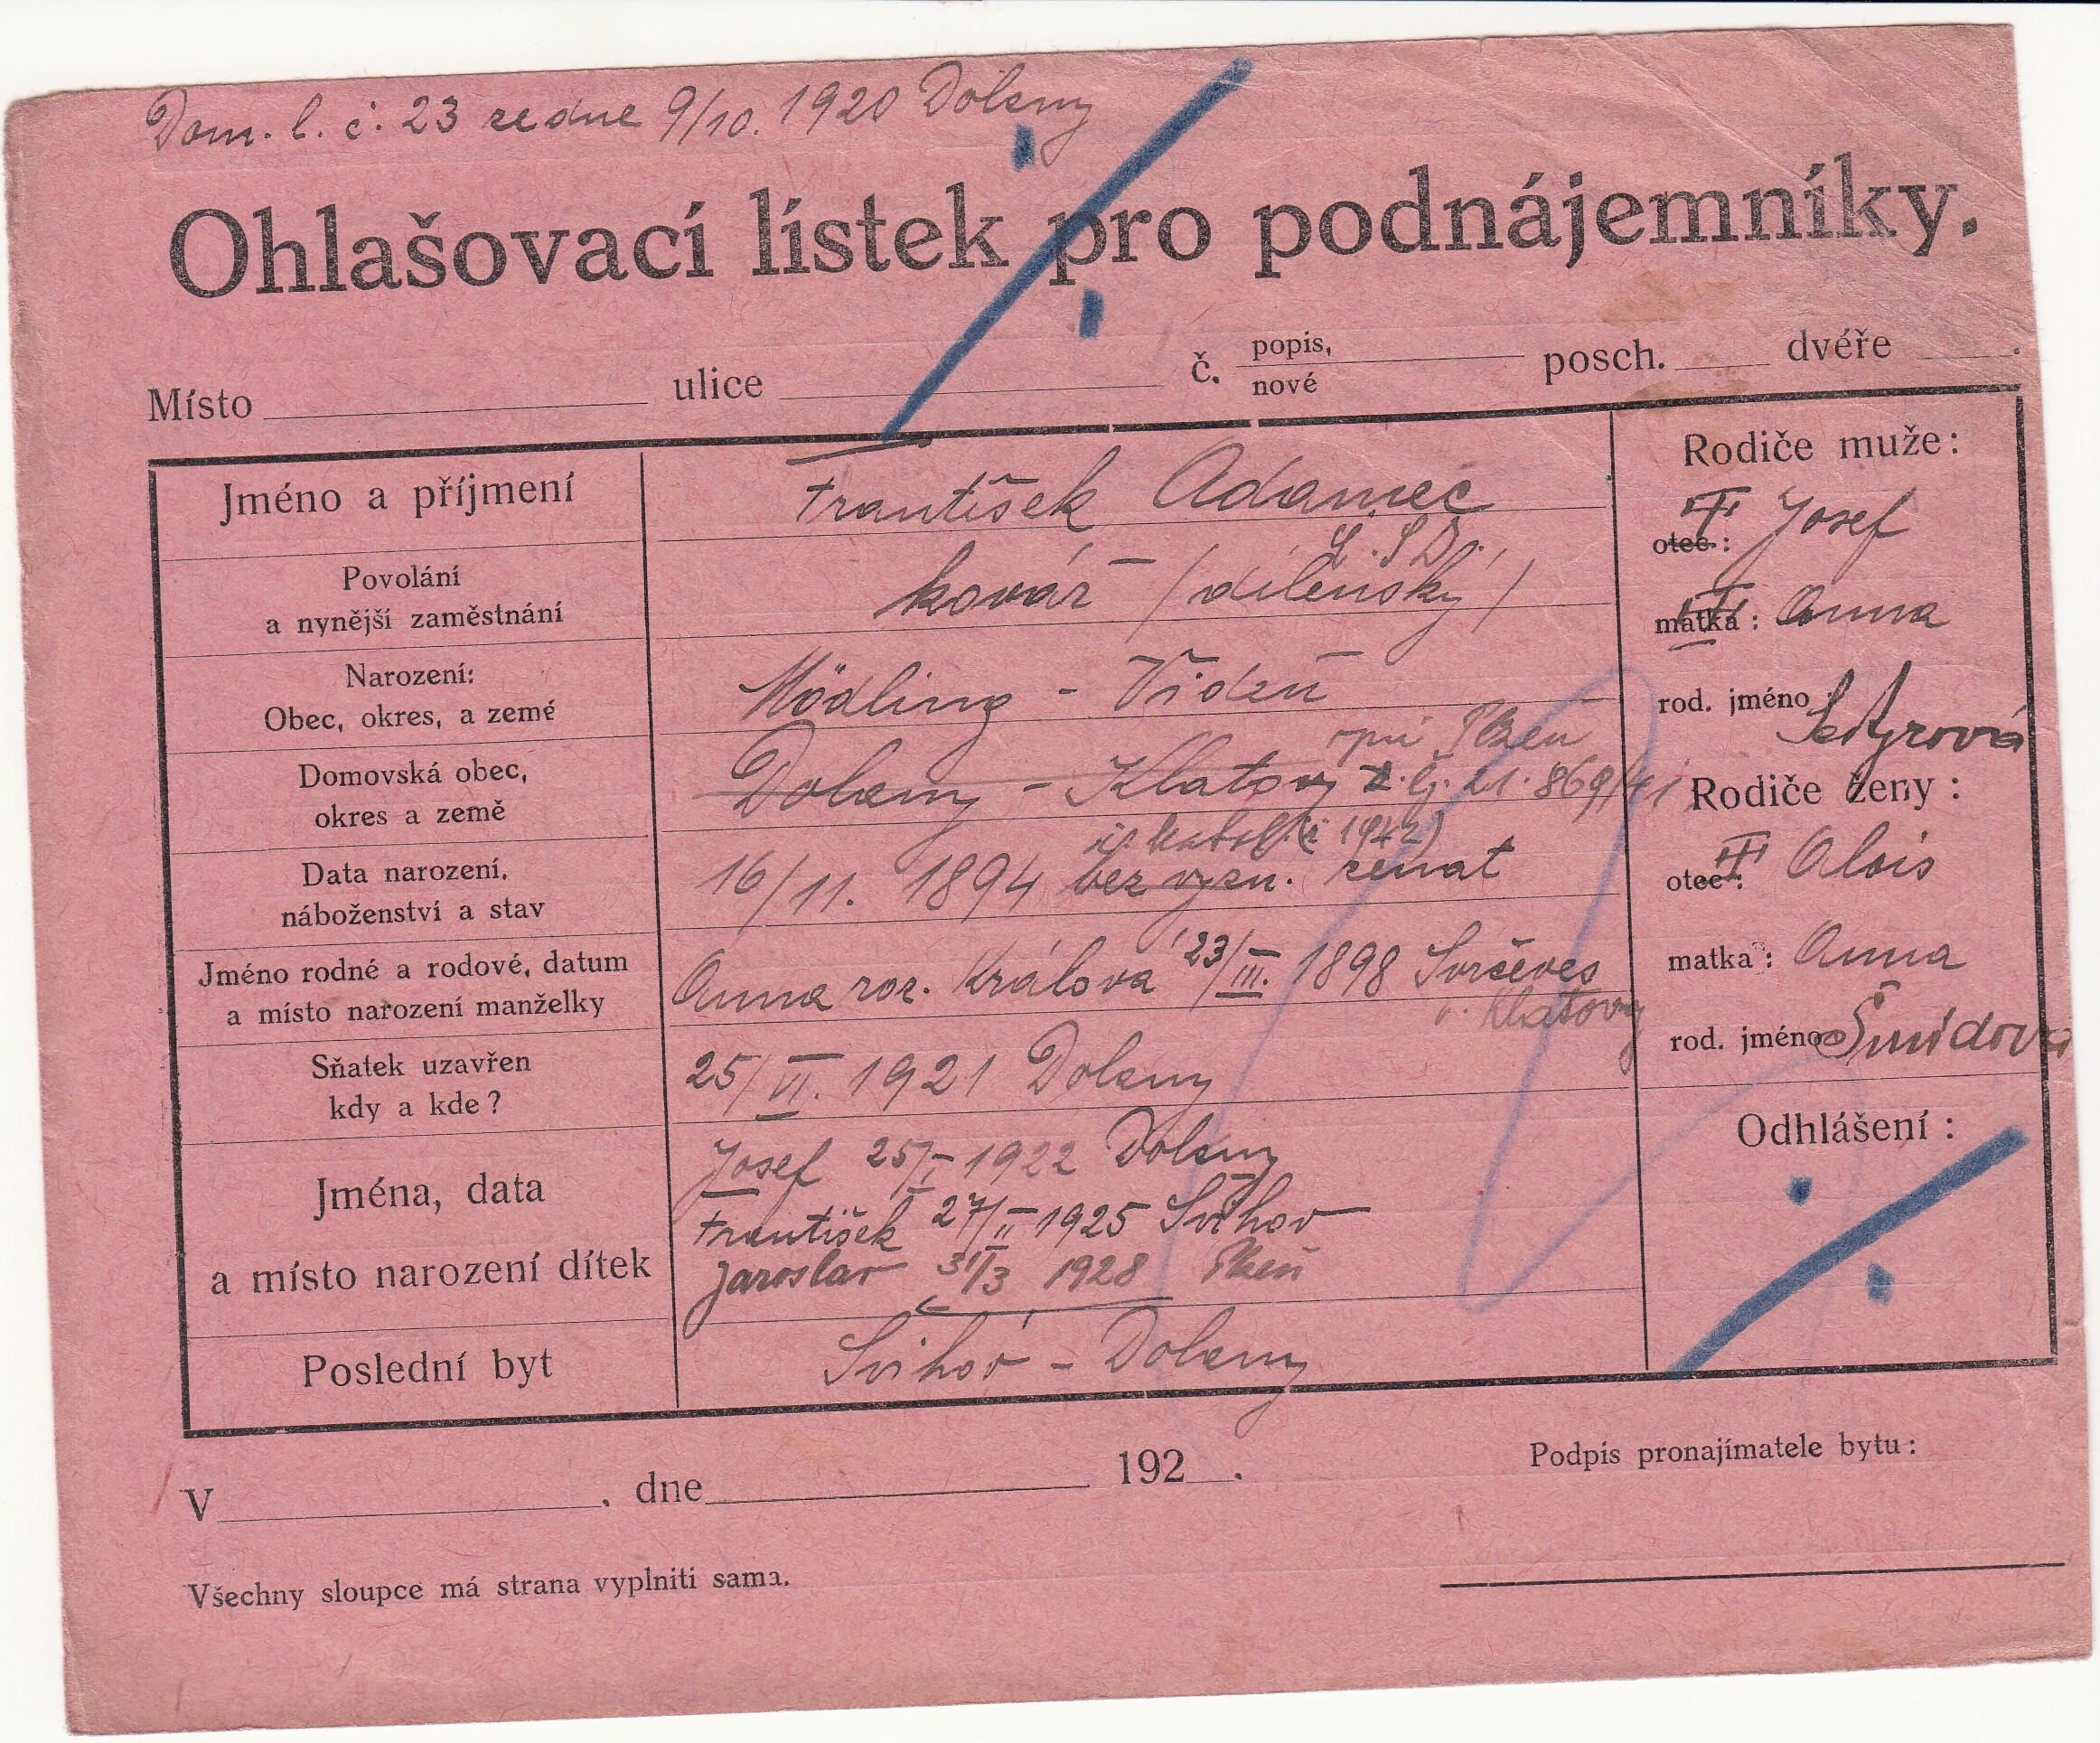 Dom. l. č. 23 ze dne 9/10. 1920 Dolany
Ohlašovací lístek pro podnájemníky.
Místo ulice č. popis, nové posch. dvéře .
Jméno a příjmení František Adamec
Rodiče muže:
otec: Josef
Povolání
a nynější zaměstnání kovář / dílenský /
matka: Anna
Narození:
Obec, okres, a země Mödling - Vídeň
rod. jméno
Domovská obec,
okres a země Dolany - Klatovy
Plzeň
Rodiče ženy:
Data narození,
náboženství a stav 16/11. 1894 bez vyzn. ženat
otec: Alois
Jméno rodné a rodové, datum
a místo narození manželky Anna roz. Králová 23/III. 1898 Svrčeves
o. Klatovy
matka: Anna
rod. jméno Šmídová
Sňatek uzavřen
kdy a kde? 25/VI. 1921 Dolany
Odhlášení:
Jména, data
a místo narození dítek
Josef 25/I 1922 Dolany
František 27/II 1925 Švihov
Jaroslav 31/3 1928 Plzeň
Poslední byt Švihov - Dolany
V , dne 192 .
Podpis pronajímatele bytu:
Všechny sloupce má strana vyplniti sama.